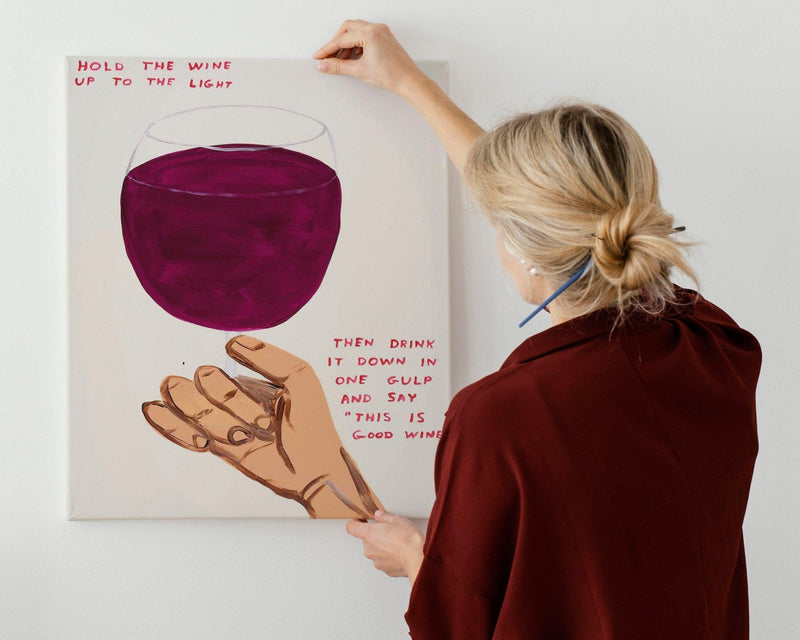 HOLD THE WINE
UP TO THE LIGHT
THEN DRINK
IT DOWN IN
ONE GULP
AND SAY
"THIS IS
GOOD WINE